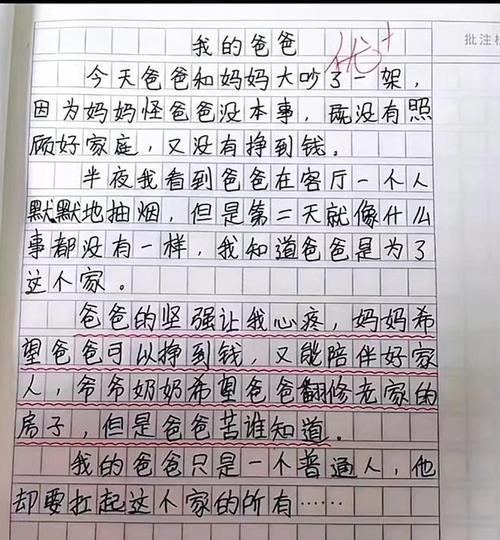 批注栏
我的爸爸
优+
今天爸爸和妈妈大吵了一架，
因为妈妈怪爸爸没本事，既没有照
顾好家庭，又没有挣到钱。
半夜我看到爸爸在客厅一个人
默默地抽烟，但是第二天就像什么
事都没有一样，我知道爸爸是为了
这个家。
爸爸的坚强让我心疼，妈妈希
望爸爸可以挣到钱，又能陪伴好家
人，爷爷奶奶希望爸爸翻修老家的
房子，但是爸爸苦谁知道。
我的爸爸只是一个普通人，他
却要扛起这个家的所有……